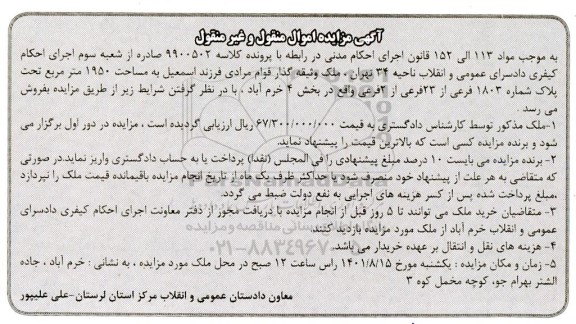 آگهی مزایده اموال منقول و غیر منقول
به موجب مواد ۱۱۳ الی ۱۵۲ قانون اجرای احکام مدنی در رابطه با پرونده کلاسه ۹۹۰۰۵۰۲ صادره از شعبه سوم اجرای احکام
کیفری دادسرای عمومی و انقلاب ناحیه ۳۴ تهران ، ملک وثیقه گذار قوام مرادی فرزند اسمعیل به مساحت ۱۹۵۰ متر مربع تحت
پلاک شماره ۱۸۰۳ فرعی از ۲۳فرعی از ۲فرعی واقع در بخش ۴ خرم آباد ، با در نظر گرفتن شرایط زیر از طریق مزایده بفروش
می رسد .
۱-ملک مذکور توسط کارشناس دادگستری به قیمت ۶۷/۲۰۰/۰۰۰/۰۰۰ ریال ارزیابی گردیده است ، مزایده در دور اول برگزار می
شود و برنده مزایده کسی است که بالاترین قیمت را پیشنهاد نماید.
۲- برنده مزایده می بایست ۱۰ درصد مبلغ پیشنهادی را فی المجلس (نقدا) پرداخت یا به حساب دادگستری واریز نماید.در صورتی
که متقاضی به هر علت از پیشنهاد خود منصرف شود یا حداکثر ظرف یک ماه از تاریخ انجام مزایده باقیمانده قیمت ملک را نپردازد
،مبلغ پرداخت شده پس از کسر هزینه های اجرایی به نفع دولت ضبط می گردد.
۳- متقاضیان خرید ملک می توانند تا ۵ روز قبل از انجام مزایده با دریافت مجوز از دفتر معاونت اجرای احکام کیفری دادسرای
عمومی و انقلاب خرم آباد از ملک مورد مزایده بازدید کنند.
۴- هزینه های نقل و انتقال بر عهده خریدار می باشد.
۵- زمان و مکان مزایده : یکشنبه مورخ ۱۴۰۱/۸/۱۵ راس ساعت ۱۲ صبح در محل ملک مورد مزایده ، به نشانی : خرم آباد ، جاده
الشتر بهرام جو، کوچه مخمل کوه ۳
معاون دادستان عمومی و انقلاب مرکز استان لرستان-علی علیپور
ParsNamadData
۰۲۱-۸۸۳۴۹۶۷۰-۵